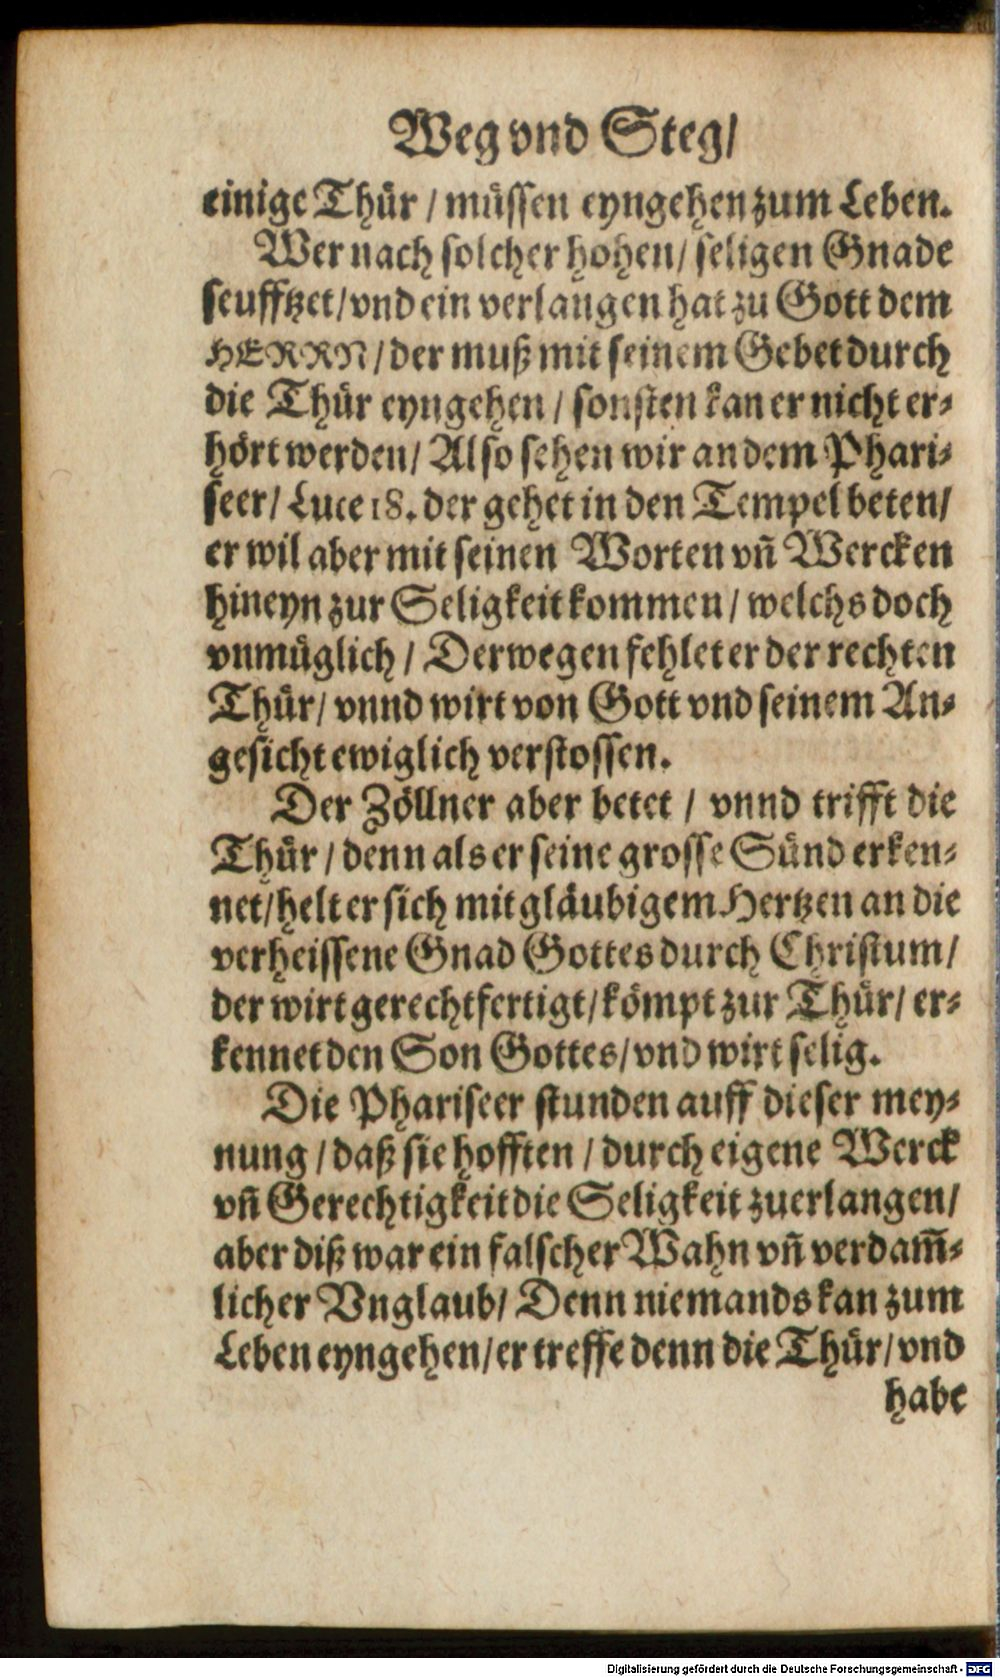 Weg vnd Steg/
einige Thür / müssen eyngehen zum Leben.
Wer nach solcher hohen/ seligen Gnade
seufftzet/ vnd ein verlangen hat zu Gott dem
HERRN/ der muß mit seinem Gebet durch
die Thür eyngehen / sonsten kan er nicht er-
hört werden/ Also sehen wir an dem Phari-
seer/ Luce 18. der gehet in den Tempel beten/
er wil aber mit seinen Worten vñ Wercken
hineyn zur Seligkeit kommen/ welchs doch
vnmüglich / Derwegen fehlet er der rechten
Thür/ vnnd wirt von Gott vnd seinem An-
gesicht ewiglich verstossen.
Der Zöllner aber betet / vnnd trifft die
Thür / denn als er seine grosse Sünd erken-
net/ helt er sich mit gläubigem Hertzen an die
verheissene Gnad Gottes durch Christum/
der wirt gerechtfertigt/ kömpt zur Thür/ er-
kennet den Son Gottes/ vnd wirt selig.
Die Phariseer stunden auff dieser mey-
nung / daß sie hofften / durch eigene Werck
vñ Gerechtigkeit die Seligkeit zuerlangen/
aber diß war ein falscher Wahn vñ verdam̃-
licher Vnglaub/ Denn niemands kan zum
Leben eyngehen/ er treffe denn die Thür/ vnd
habe
Digitalisierung gefördert durch die Deutsche Forschungsgemeinschaft - DFG